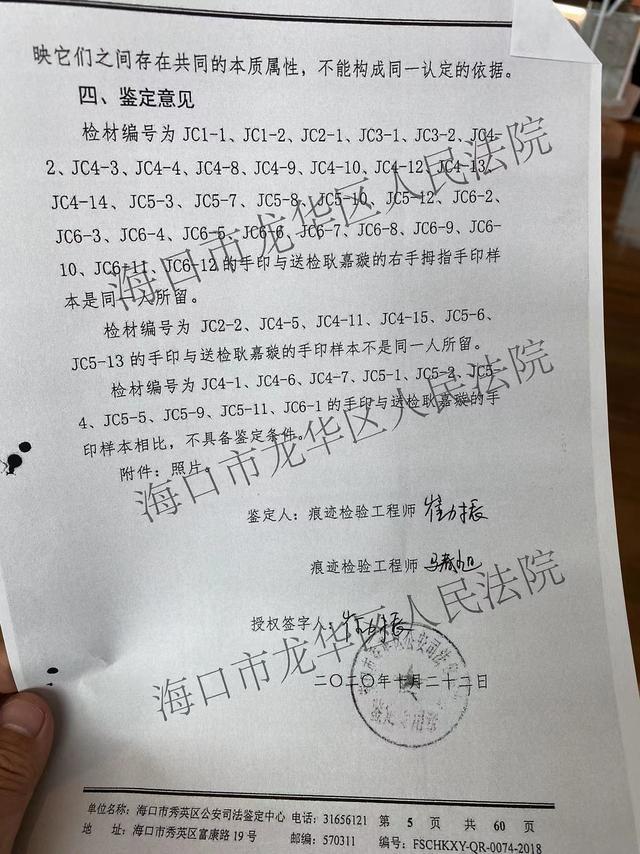 映它们之间存在共同的本质属性，不能构成同一认定的依据。
四、鉴定意见
检材编号为 JC1-1、JC1-2、JC2-1、JC3-1、JC3-2、JC4-
2、JC4-3、JC4-4、JC4-8、JC4-9、JC4-10、JC4-12、JC4-13、
JC4-14、JC5-3、JC5-7、JC5-8、JC5-10、JC5-12、JC6-2、
JC6-3、JC6-4、JC6-5、JC6-6、JC6-7、JC6-8、JC6-9、JC6-
10、JC6-11、JC6-12 的手印与送检耿嘉璇的右手拇指手印样
本是同一人所留。
检材编号为 JC2-2、JC4-5、JC4-11、JC4-15、JC5-6、
JC5-13 的手印与送检耿嘉璇的手印样本不是同一人所留。
检材编号为 JC4-1、JC4-6、JC4-7、JC5-1、JC5-2、JC5-
4、JC5-5、JC5-9、JC5-11、JC6-1 的手印与送检耿嘉璇的手
印样本相比，不具备鉴定条件。
附件：照片。
鉴定人：痕迹检验工程师
痕迹检验工程师
授权签字人：
二〇二〇年十月二十二日
鉴定专用章
海口市龙华区人民法院
海口市龙华区人民法院
海口市龙华区人民法院
单位名称：海口市秀英区公安司法鉴定中心 电话：31656121 第 5 页 共 60 页
地 址：海口市秀英区富康路 19 号 邮编：570311 编号：FSCHKXY-QR-0074-2018